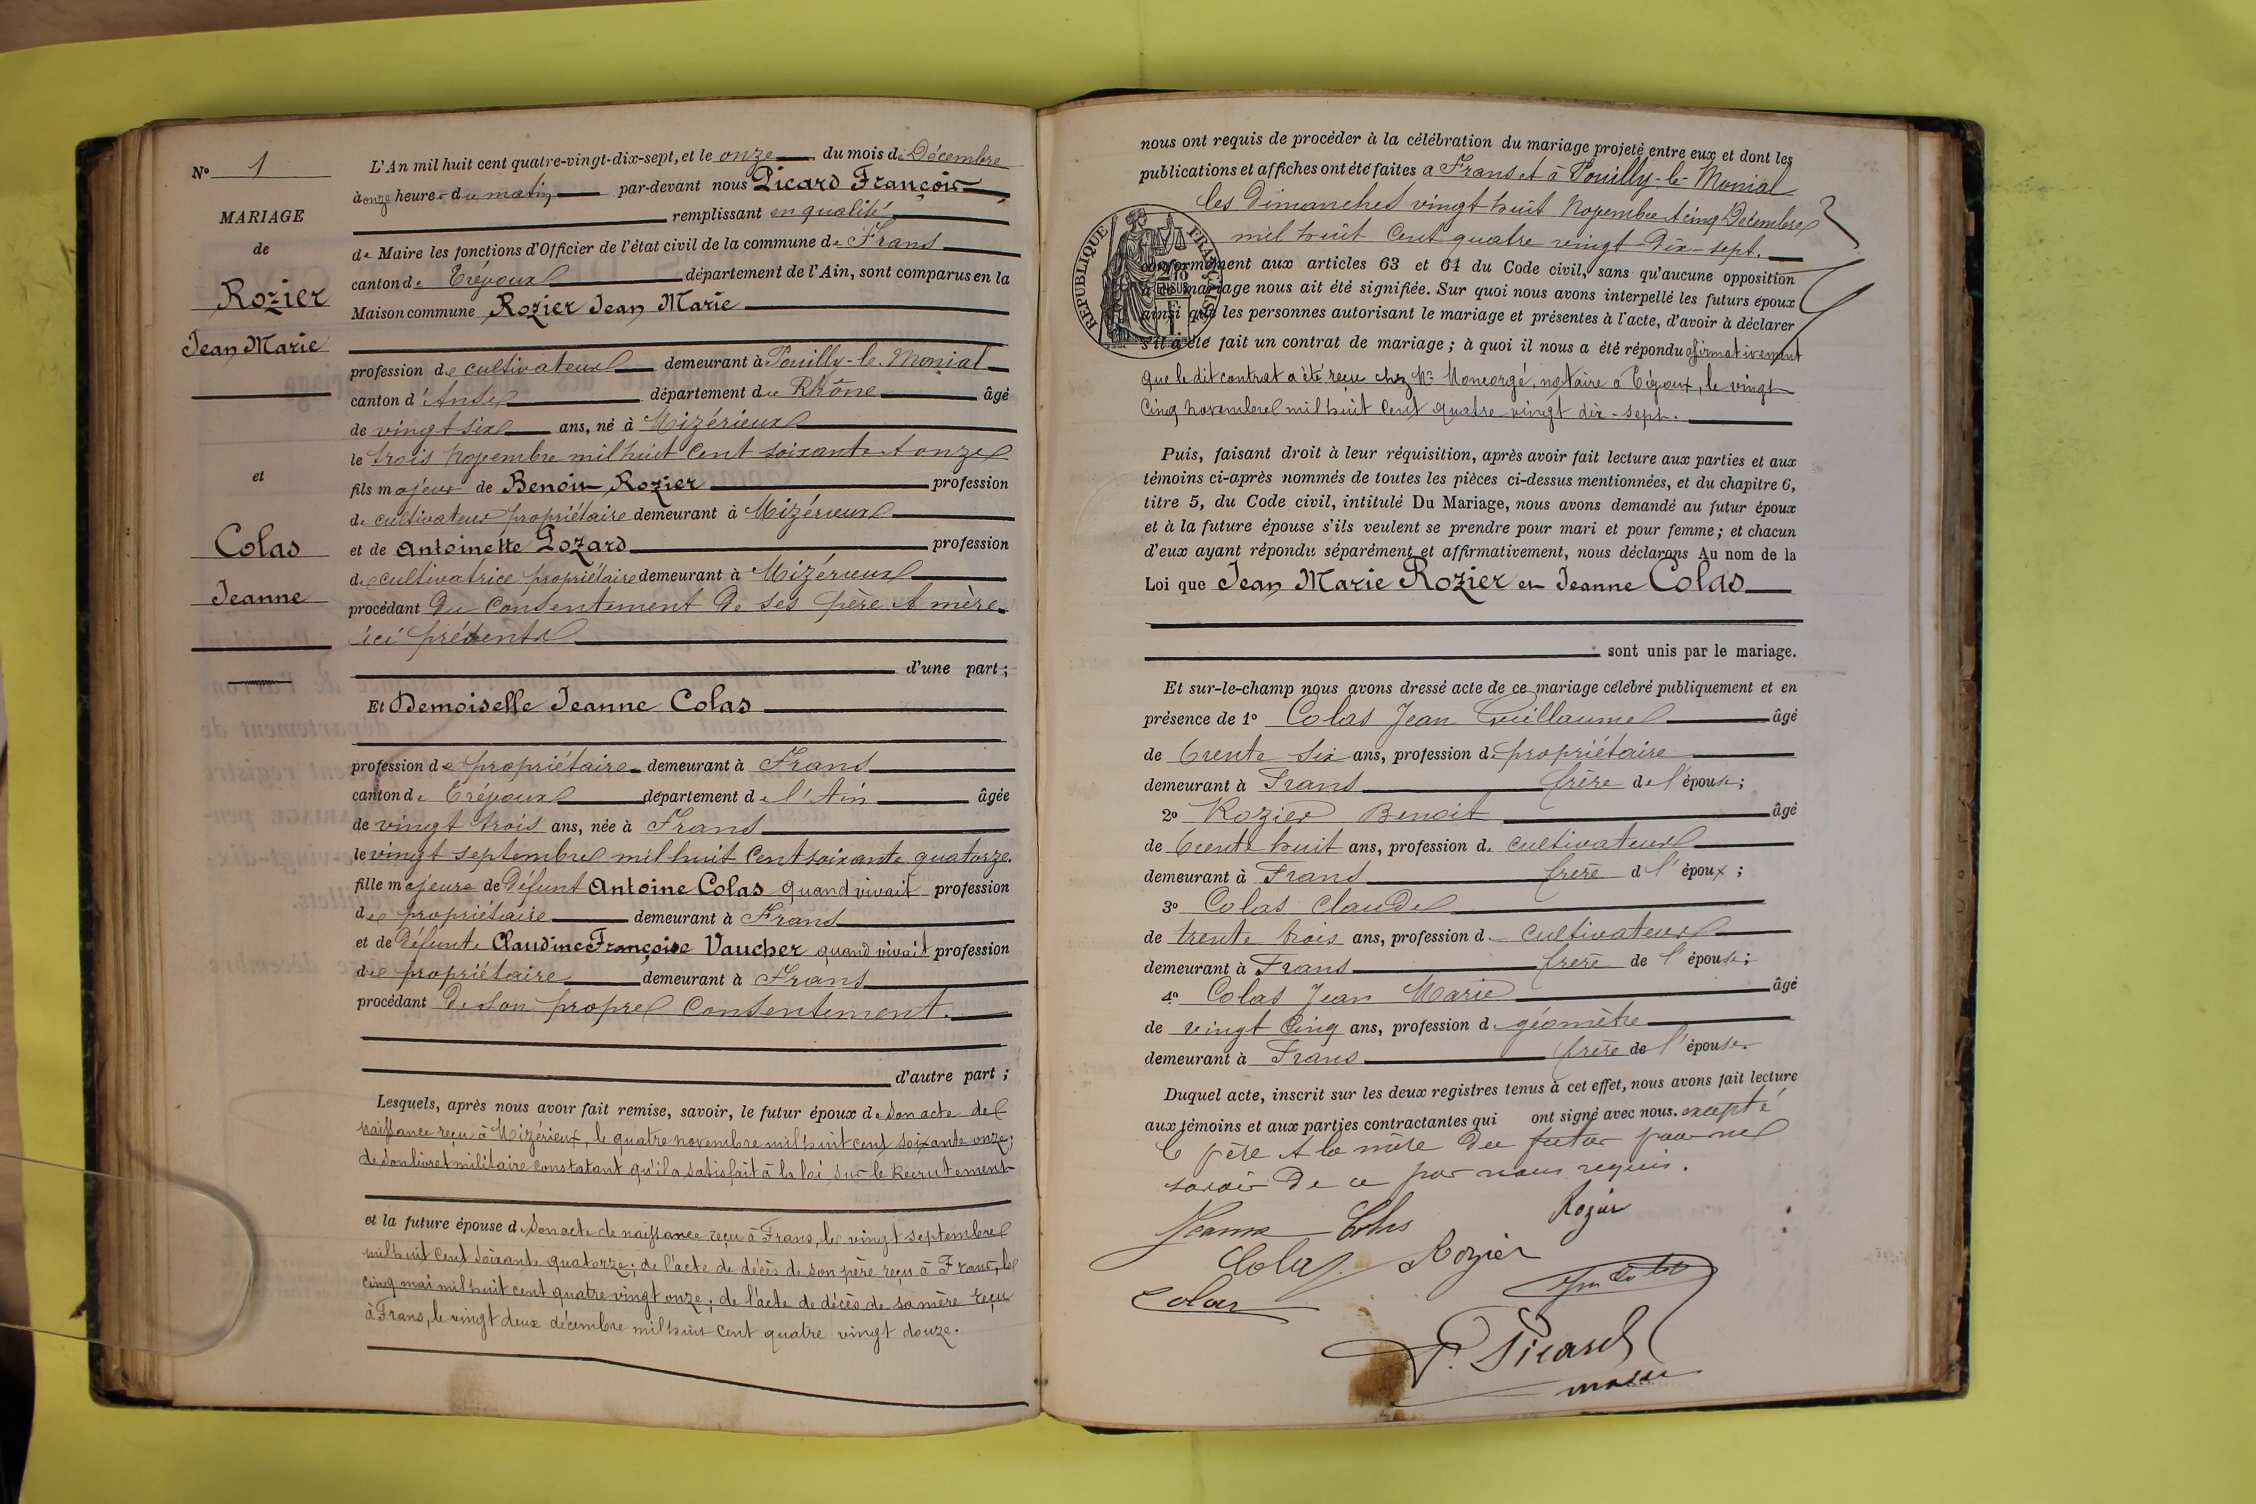 N° 1
MARIAGE
de
Rozier
Jean Marie
et
Colas
Jeanne
L'An mil huit cent quatre-vingt-dix-sept, et le onze du mois de Décembre
à onze heures du matin par-devant nous Picard François
remplissant en qualité
de Maire les fonctions d'Officier de l'état civil de la commune de Frans
canton de Trévoux département de l'Ain, sont comparus en la
Maison commune Rozier Jean Marie
profession de cultivateur demeurant à Pouilly-le-Monial
canton d'Anse département du Rhône âgé
de vingt six ans, né à Mizérieux
le trois novembre mil huit cent soixante et onze
fils majeur de Benoit Rozier profession
de cultivateur propriétaire demeurant à Mizérieux
et de Antoinette Gozard profession
de cultivatrice propriétaire demeurant à Mizérieux
procédant du consentement de ses père et mère
ici présents
d'une part;
Et Demoiselle Jeanne Colas
profession de propriétaire demeurant à Frans
canton de Trévoux département de l'Ain âgée
de vingt trois ans, née à Frans
le vingt septembre mil huit cent soixante quatorze.
fille majeure de Défunt Antoine Colas quand vivait profession
de propriétaire demeurant à Frans
et de Défunte Claudine Françoise Vaucher quand vivait profession
de propriétaire demeurant à Frans
procédant de son propre consentement.
d'autre part;
Lesquels, après nous avoir fait remise, savoir, le futur époux de son acte de
naissance reçu à Mizérieux, le quatre novembre mil huit cent soixante onze;
de son livret militaire constatant qu'il a satisfait à la loi sur le Recrutement
et la future épouse de son acte de naissance reçu à Frans, le vingt septembre
mil huit cent soixante quatorze; de l'acte de décès de son père reçu à Frans, le
cinq mai mil huit cent quatre vingt onze; de l'acte de décès de sa mère reçu
à Frans, le vingt deux décembre mil huit cent quatre vingt douze.
nous ont requis de procéder à la célébration du mariage projeté entre eux et dont les
publications et affiches ont été faites à Frans et à Pouilly-le-Monial
les Dimanches vingt huit Novembre et cinq Décembre
mil huit cent quatre vingt-dix-sept.
RÉPUBLIQUE FRANÇAISE
conformément aux articles 63 et 64 du Code civil, sans qu'aucune opposition
à ce mariage nous ait été signifiée. Sur quoi nous avons interpellé les futurs époux
ainsi que les personnes autorisant le mariage et présentes à l'acte, d'avoir à déclarer
s'il a été fait un contrat de mariage; à quoi il nous a été répondu afirmativement
que le dit contrat a été reçu chez Me Moncorgé, notaire à Trévoux, le vingt
cinq novembre mil huit cent quatre vingt dix-sept.
Puis, faisant droit à leur réquisition, après avoir fait lecture aux parties et aux
témoins ci-après nommés de toutes les pièces ci-dessus mentionnées, et du chapitre 6,
titre 5, du Code civil, intitulé Du Mariage, nous avons demandé au futur époux
et à la future épouse s'ils veulent se prendre pour mari et pour femme; et chacun
d'eux ayant répondu séparément et affirmativement, nous déclarons Au nom de la
Loi que Jean Marie Rozier et Jeanne Colas
sont unis par le mariage.
Et sur-le-champ nous avons dressé acte de ce mariage célébré publiquement et en
présence de 1° Colas Jean Guillaume âgé
de trente six ans, profession de propriétaire
demeurant à Frans frère de l'épouse;
2° Rozier Benoit âgé
de trente huit ans, profession de cultivateur
demeurant à Frans frère de l'époux;
3° Colas Claude
de trente trois ans, profession de cultivateur
demeurant à Frans frère de l'épouse;
4° Colas Jean Marie âgé
de vingt cinq ans, profession de géomètre
demeurant à Frans frère de l'épouse.
Duquel acte, inscrit sur les deux registres tenus à cet effet, nous avons fait lecture
aux témoins et aux parties contractantes qui ont signé avec nous. excepté
le père et la mère du futur pour ne
savoir de ce par nous requis.
Jeanne Colas Rozier
Colas Rozier
Colas
F. Picard
maire